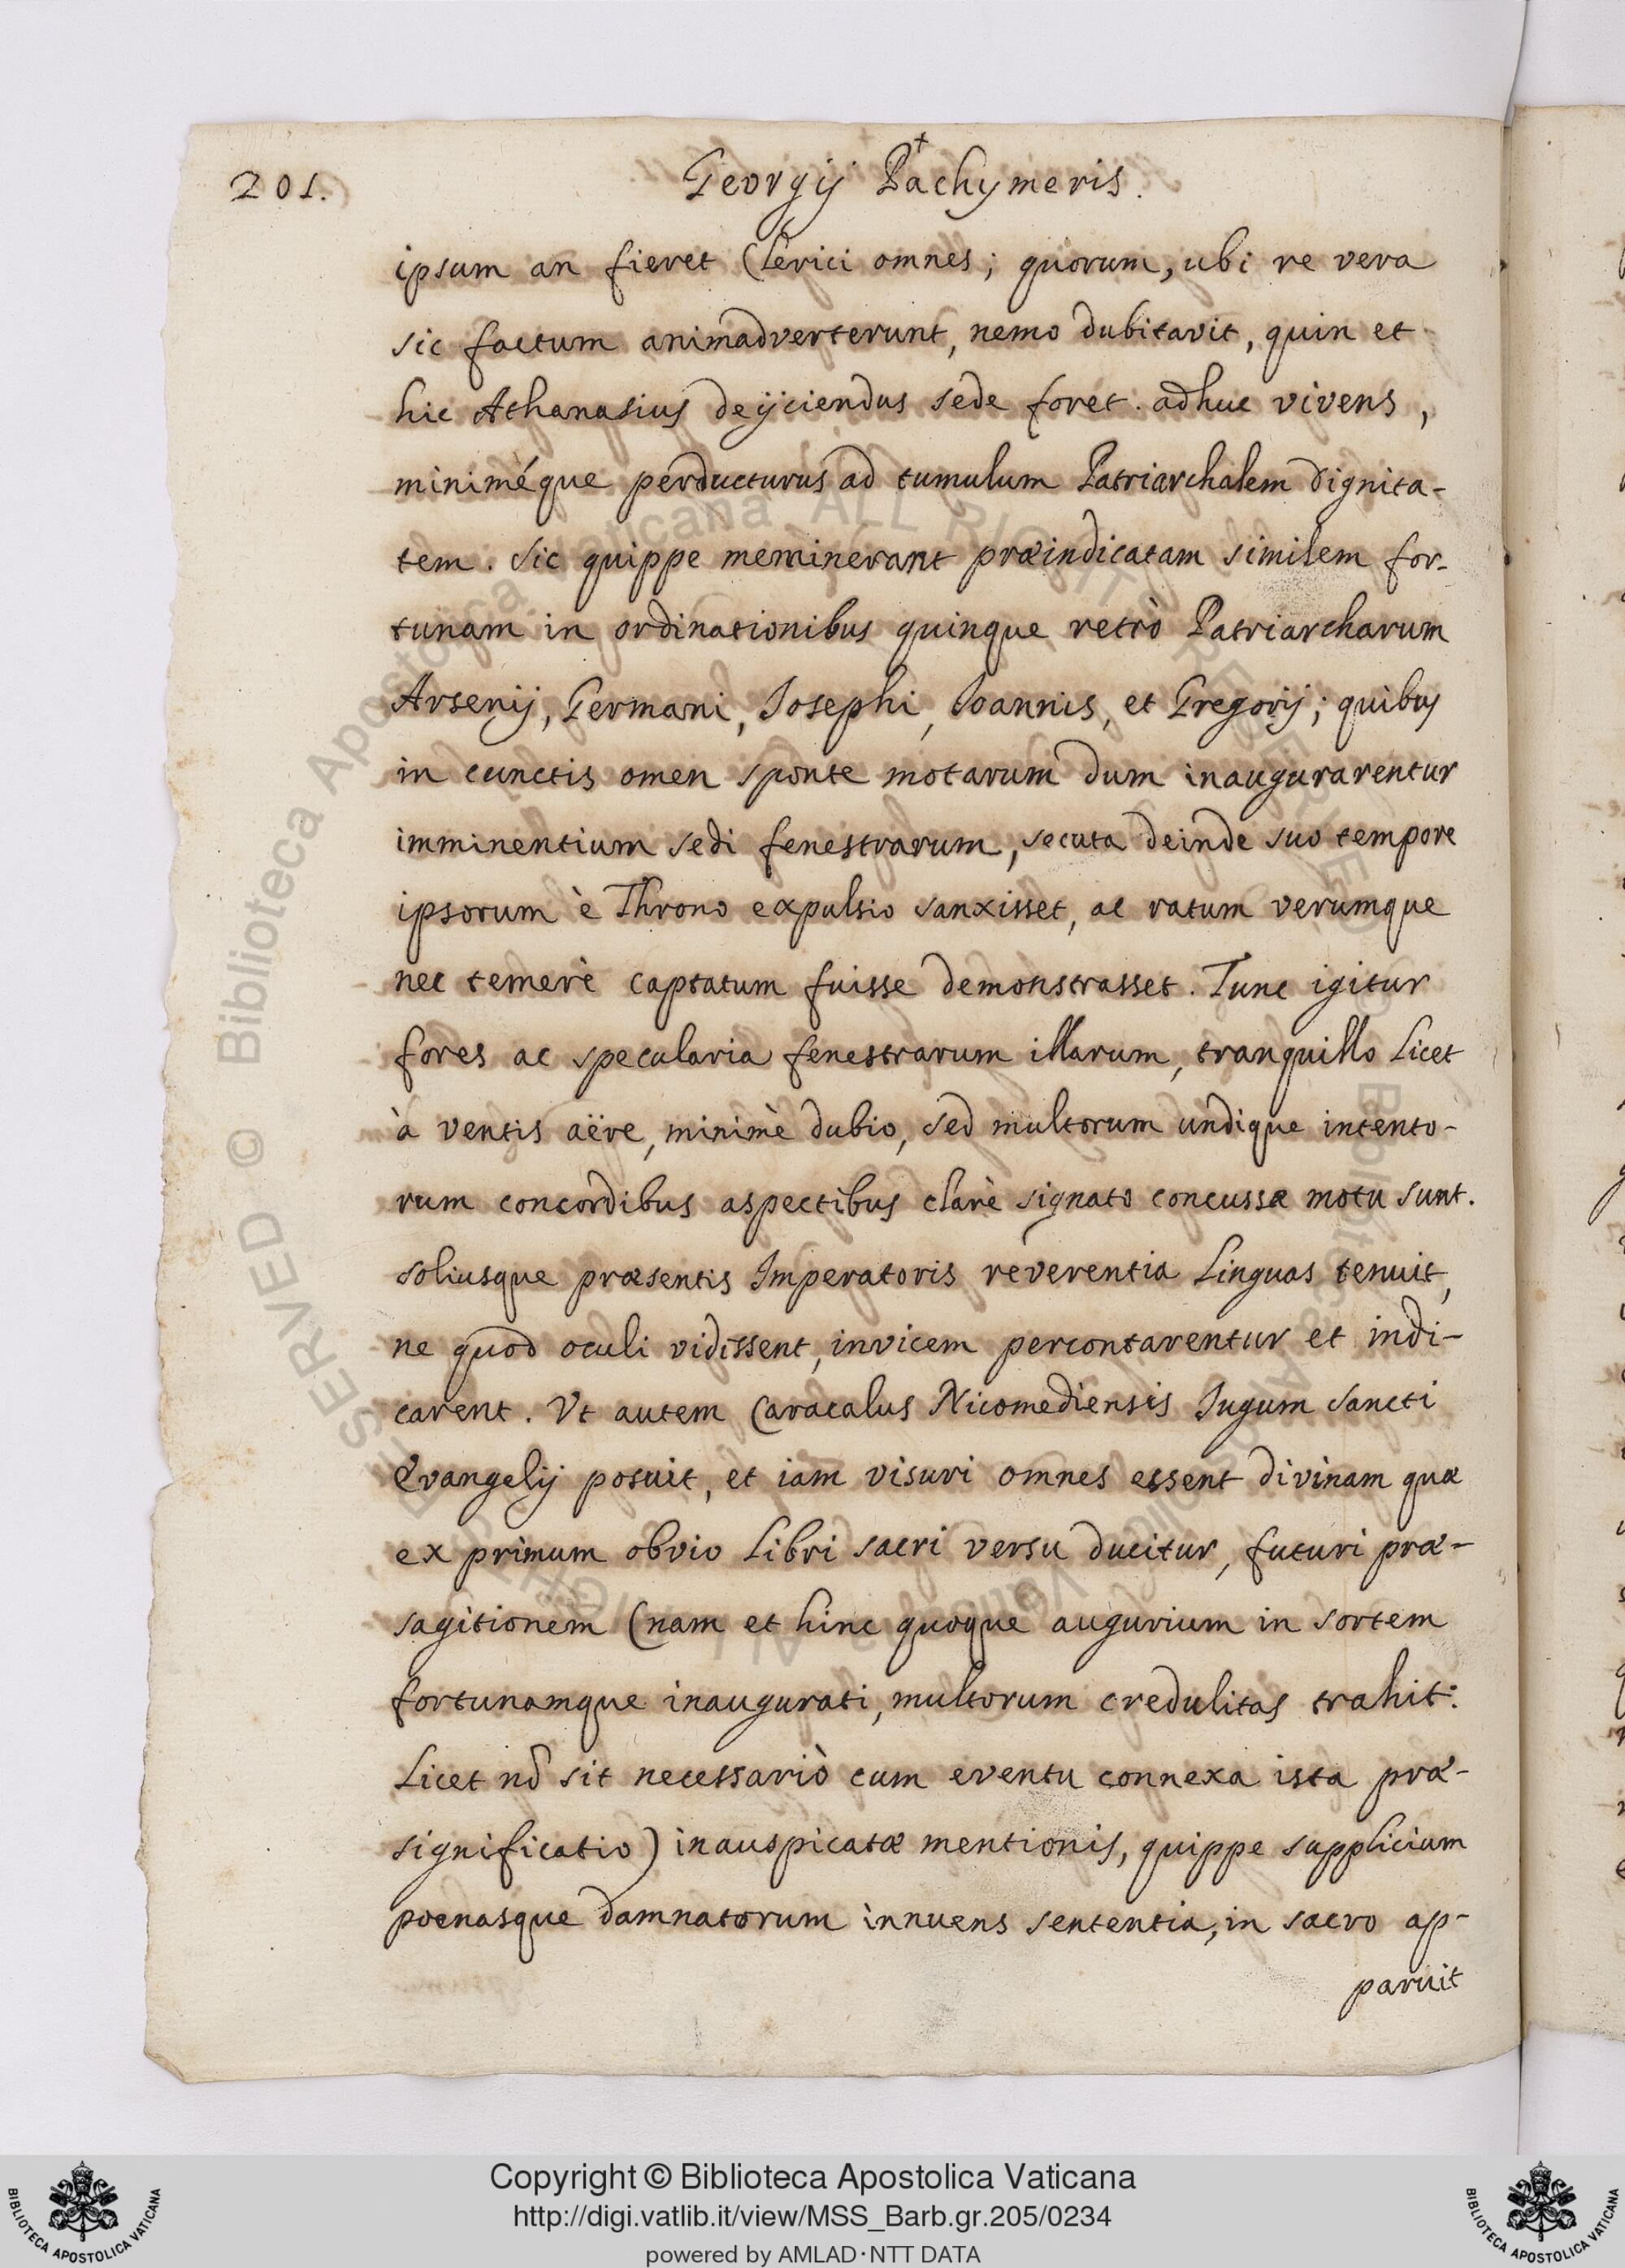 201.
Georgij Pachymeris.
ipsum an fieret Clerici omnes; quorum, ubi re vera
sic factum animadverterunt, nemo dubitavit, quin et
hic Athanasius deijciendus sede foret. adhuc vivens,
miniméque perducturus ad tumulum Patriarchalem dignita-
tem. Sic quippe meminerant præindicatam similem for-
tunam in ordinationibus quinque retrò Patriarcharum
Arsenij, Germani, Josephi, Joannis, et Gregorij; quibus
in cunctis omen sponte motarum dum inaugurarentur
imminentium sedi fenestrarum, secuta deinde suo tempore
ipsorum è Throno expulsio sanxisset, ac ratum verumque
nec temerè captatum fuisse demonstrasset. Tunc igitur
fores ac specularia fenestrarum illarum, tranquillo licet
à ventis aëre, minimè dubio, sed multorum undique intento-
rum concordibus aspectibus clarè signato concussæ motu sunt.
soliusque præsentis Imperatoris reverentia linguas tenuit,
ne quod oculi vidissent, invicem percontarentur et indi-
carent. Vt autem Caracalus Nicomediensis Jugum sancti
Evangelij posuit, et iam visuri omnes essent divinam quæ
ex primum obvio libri sacri versu ducitur, futuri præ-
sagitionem (nam et hinc quoque augurium in sortem
fortunamque inaugurati, multorum credulitas trahit:
Licet nō sit necessariò cum eventu connexa ista præ-
significatio) inauspicatæ mentionis, quippe supplicium
poenasque damnatorum innuens sententia, in sacro ap-
paruit
Biblioteca Apostolica Vaticana ALL RIGHTS RESERVED ©
Copyright © Biblioteca Apostolica Vaticana
http://digi.vatlib.it/view/MSS_Barb.gr.205/0234
powered by AMLAD·NTT DATA
BIBLIOTECA APOSTOLICA VATICANA
BIBLIOTECA APOSTOLICA VATICANA